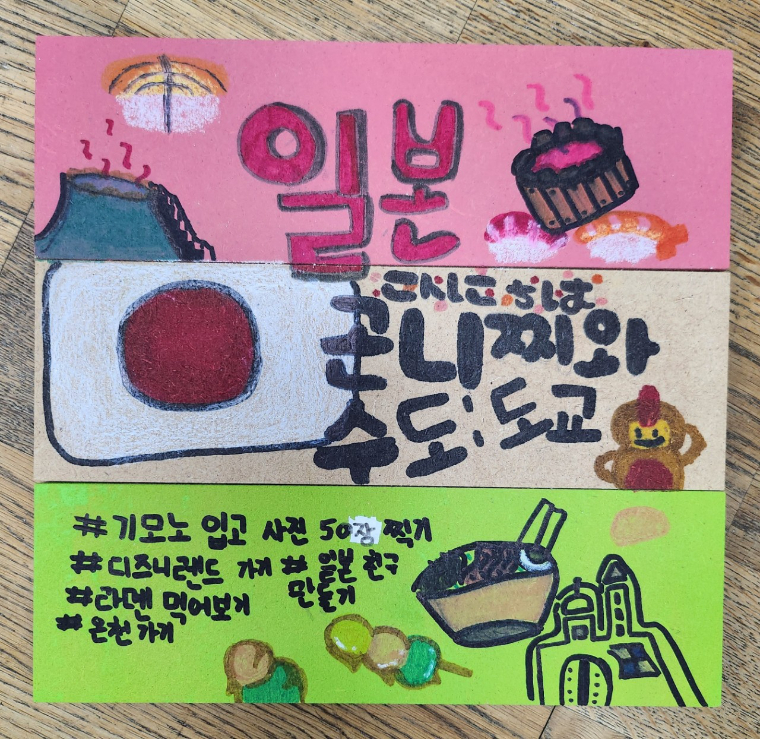 일본
こんにちは
곤니찌와
수도: 도쿄
#기모노 입고 사진 50장 찍기
#디즈니랜드 가기 #일본 친구 만들기
#라멘 먹어보기
#온천가기